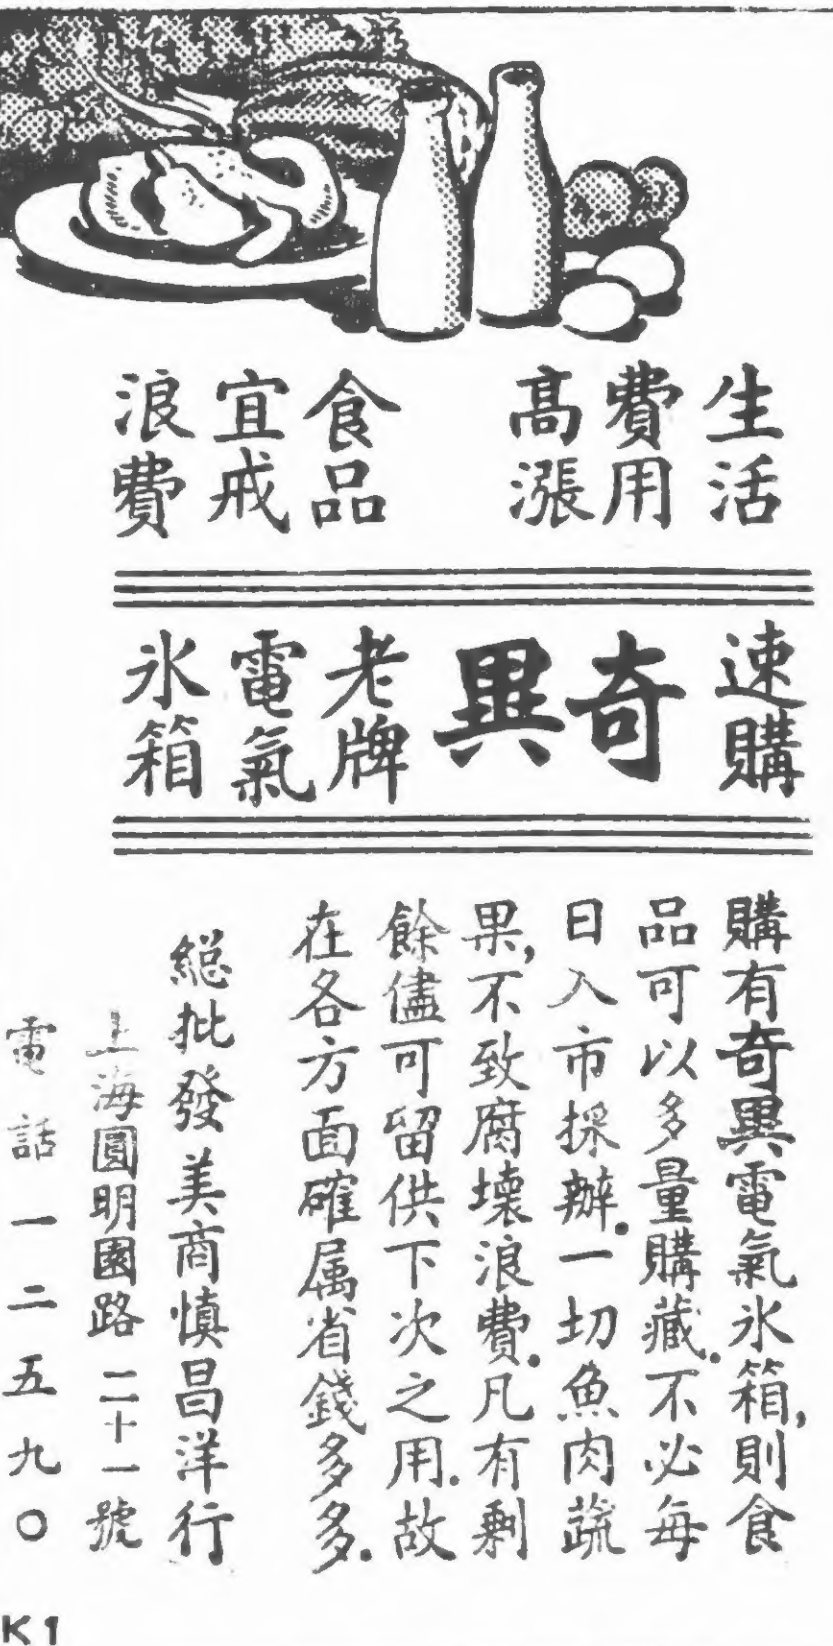 生活
費用
高漲
食品
宜戒
浪費
速購
奇異
老牌
電氣
氷箱
購有奇異電氣氷箱,則食
品可以多量購藏.不必每
日入市採辦.一切魚肉蔬
果,不致腐壞浪費.凡有剩
餘儘可留供下次之用.故
在各方面確属省錢多多.
総批發美商慎昌洋行
上海圓明園路二十一號
電話一二五九〇
K1